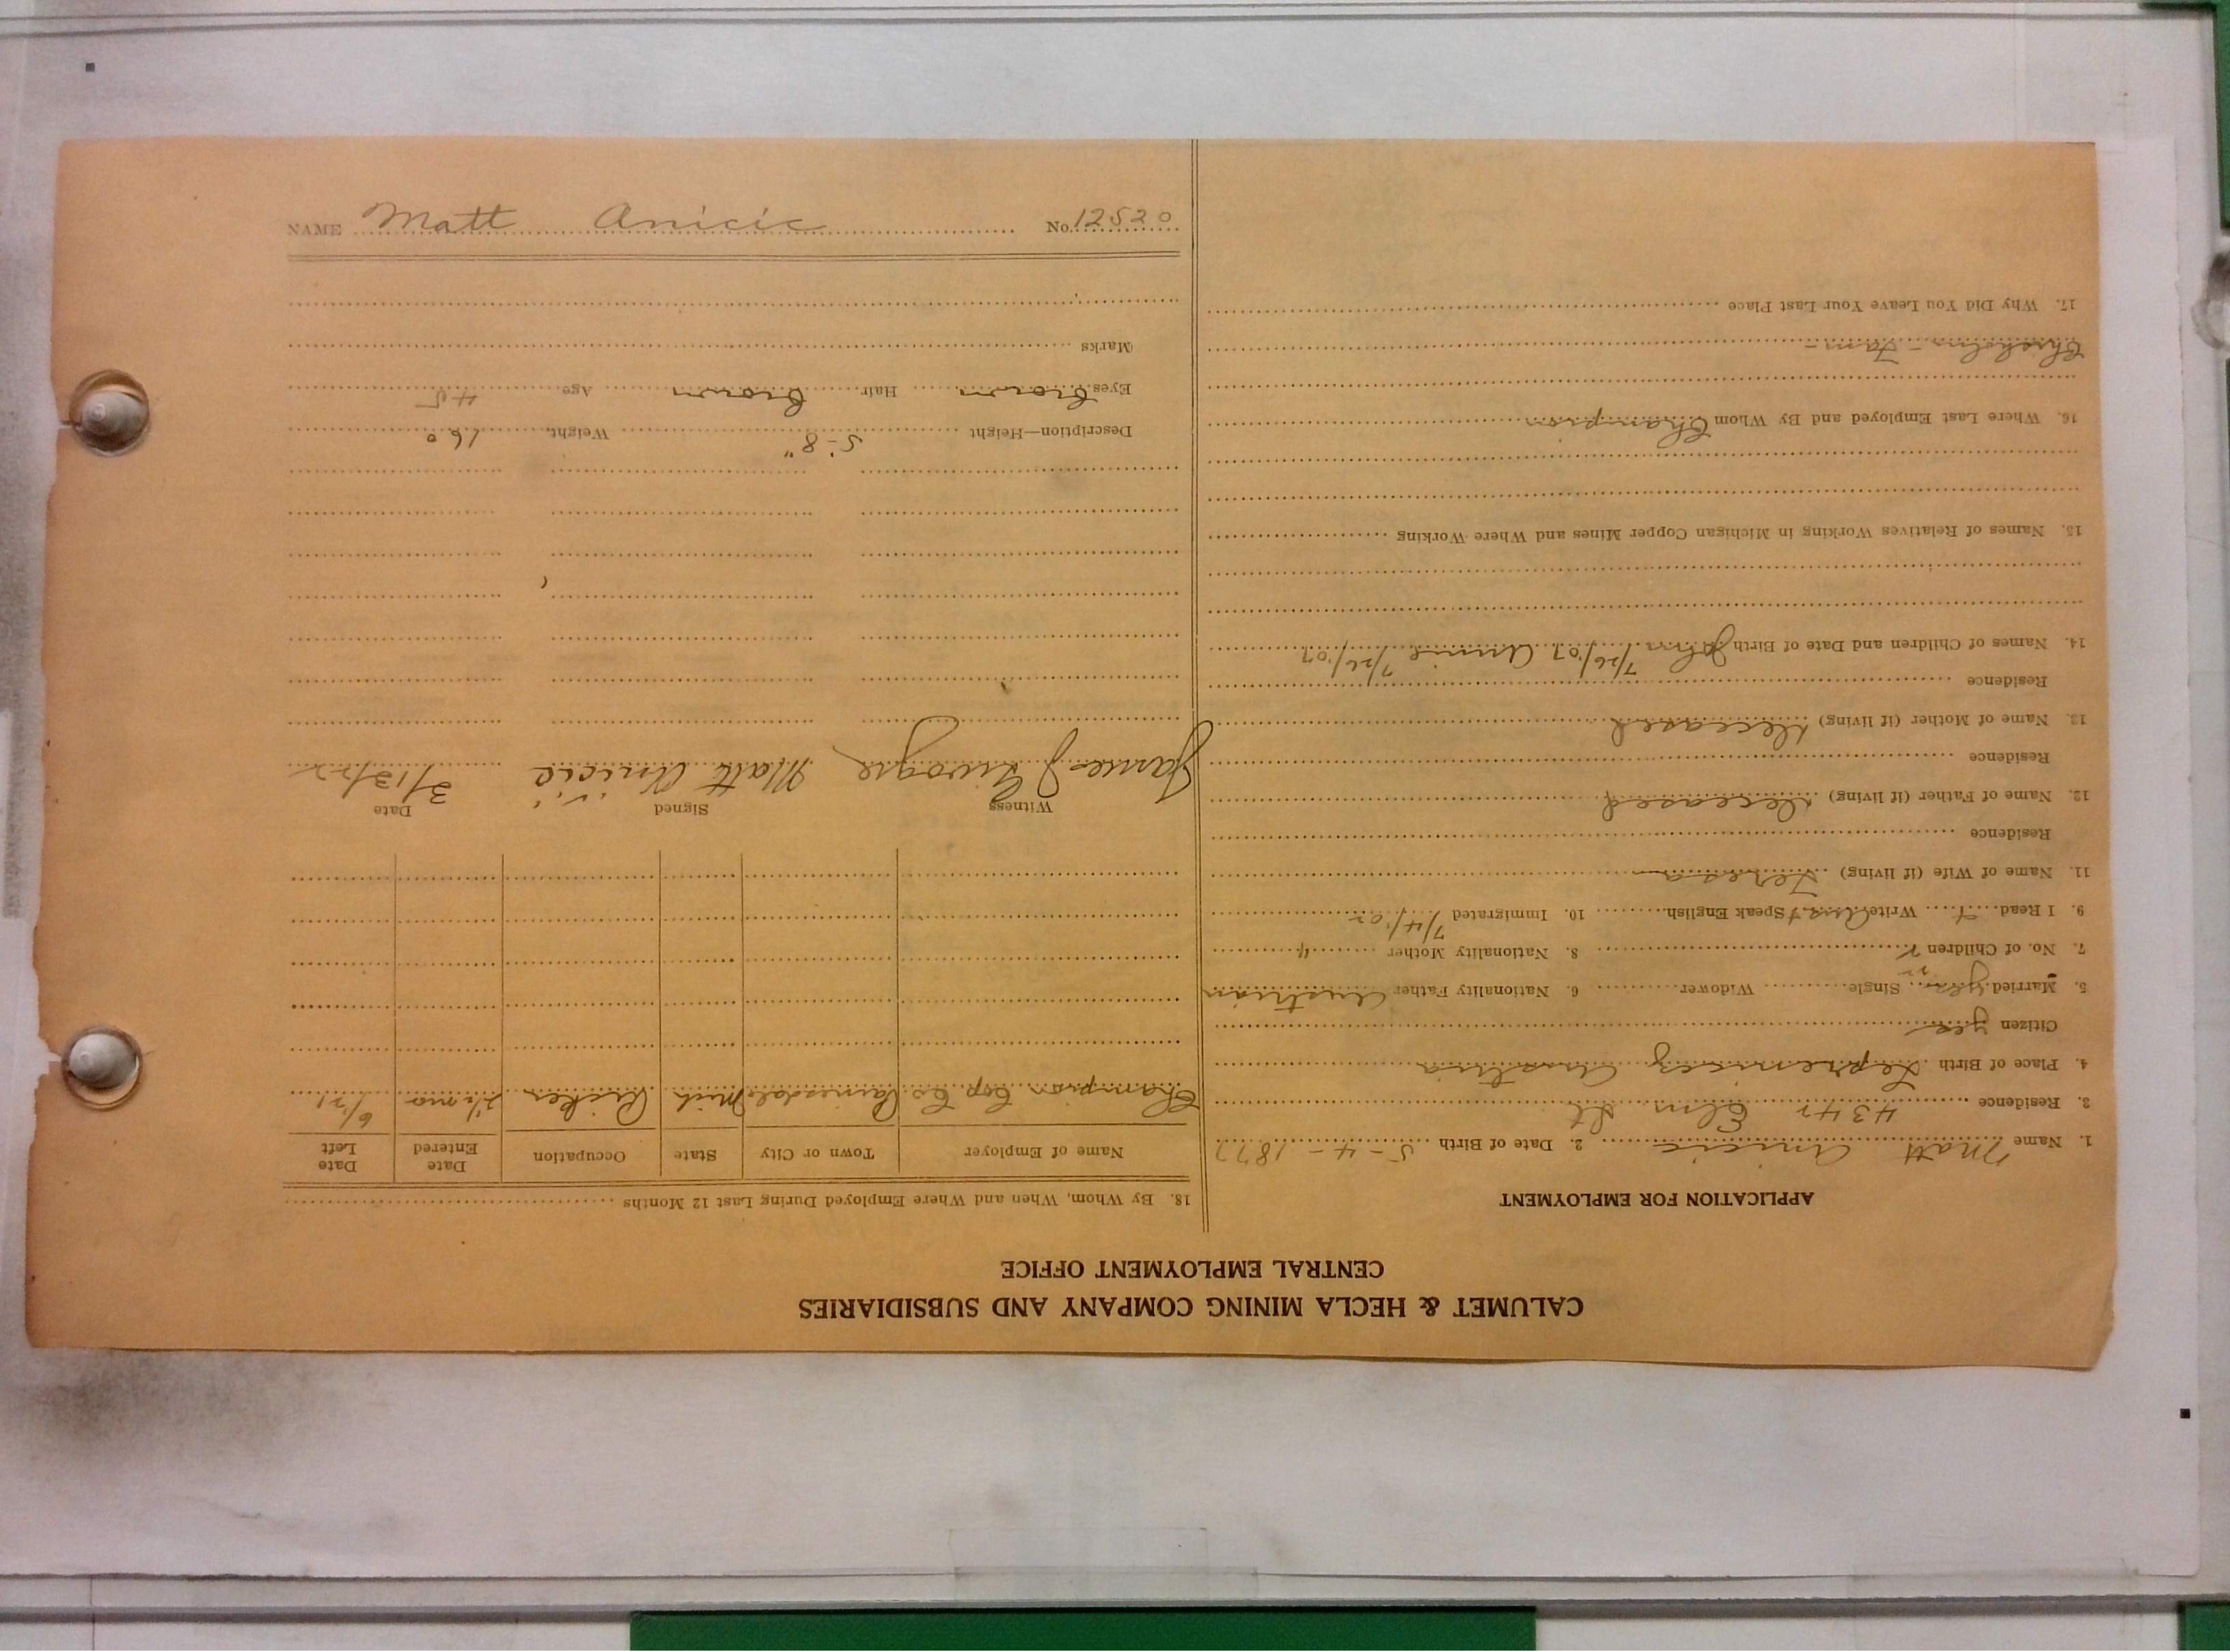 CALUMET & HECLA MINING COMPANY AND SUBSIDIARIES
CENTRAL EMPLOYMENT OFFICE
APPLICATION FOR EMPLOYMENT
1. Name Matt Anicic 2. Date of Birth 5-4-1877
3. Residence 4342 Elm St
4. Place of Birth Austria
Citizen yes
5. Married yes Single Widower 6. Nationality Father Austrian
7. No. of Children 2 8. Nationality Mother "
9. I Read Write Speak English 10. Immigrated 7/4/02
11. Name of Wife (if living) Teresa
Residence
12. Name of Father (if living) Deceased
Residence
13. Name of Mother (if living) Deceased
Residence
14. Names of Children and Date of Birth John 7/26/07 Annie 7/26/07
15. Names of Relatives Working in Michigan Copper Mines and Where Working
16. Where Last Employed and By Whom Champion
Chisholm -
17. Why Did You Leave Your Last Place
18. By Whom, When and Where Employed During Last 12 Months
Name of Employer Town or City State Occupation Date Entered Date Left
Champion Cop Co Painesdale Mich 2½ mo 6/21
Witness Signed Date
James Matt Aničić 3/13/22
Description—Height 5-8" Weight 160
Eyes Brown Hair Brown Age 45
Marks
NAME Matt Anicic No. 12520